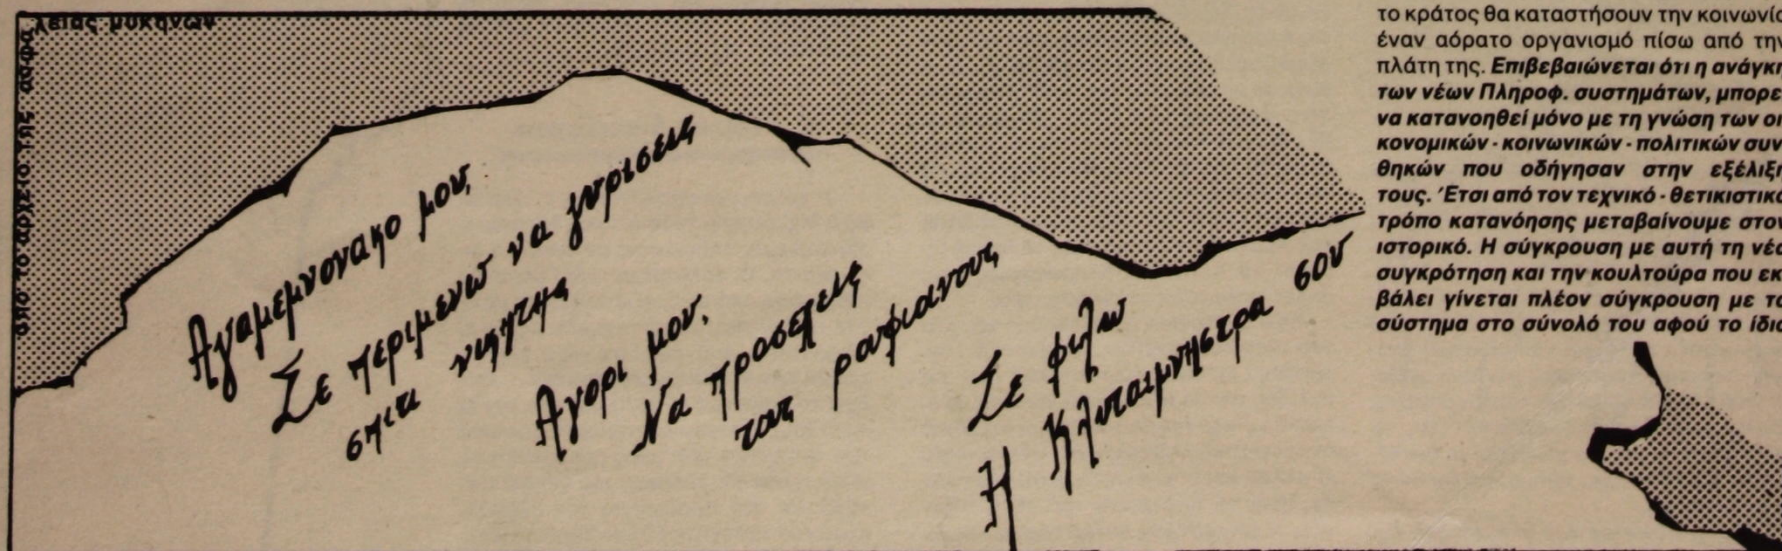 από το αρχείο της ασφα
λείας μυκηνών
Αγαμεμνονακο μου,
Σε περιμενω να γυρισεις
σπιτι νικητης
Αγορι μου,
Να προσεχεις
τους ρουφιανους
Σε φιλω
Η Κλυταιμνηστρα σου
το κράτος θα καταστήσουν την κοινωνία
έναν αόρατο οργανισμό πίσω από την
πλάτη της. Επιβεβαιώνεται ότι η ανάγκη
των νέων Πληροφ. συστημάτων, μπορε
να κατανοηθεί μόνο με τη γνώση των οι
κονομικών - κοινωνικών - πολιτικών συν
θηκών που οδήγησαν στην εξέλιξη
τους. Έτσι από τον τεχνικό - θετικιστικό
τρόπο κατανόησης μεταβαίνουμε στον
ιστορικό. Η σύγκρουση με αυτή τη νέα
συγκρότηση και την κουλτούρα που εκ
βάλει γίνεται πλέον σύγκρουση με το
σύστημα στο σύνολό του αφού το ίδιο